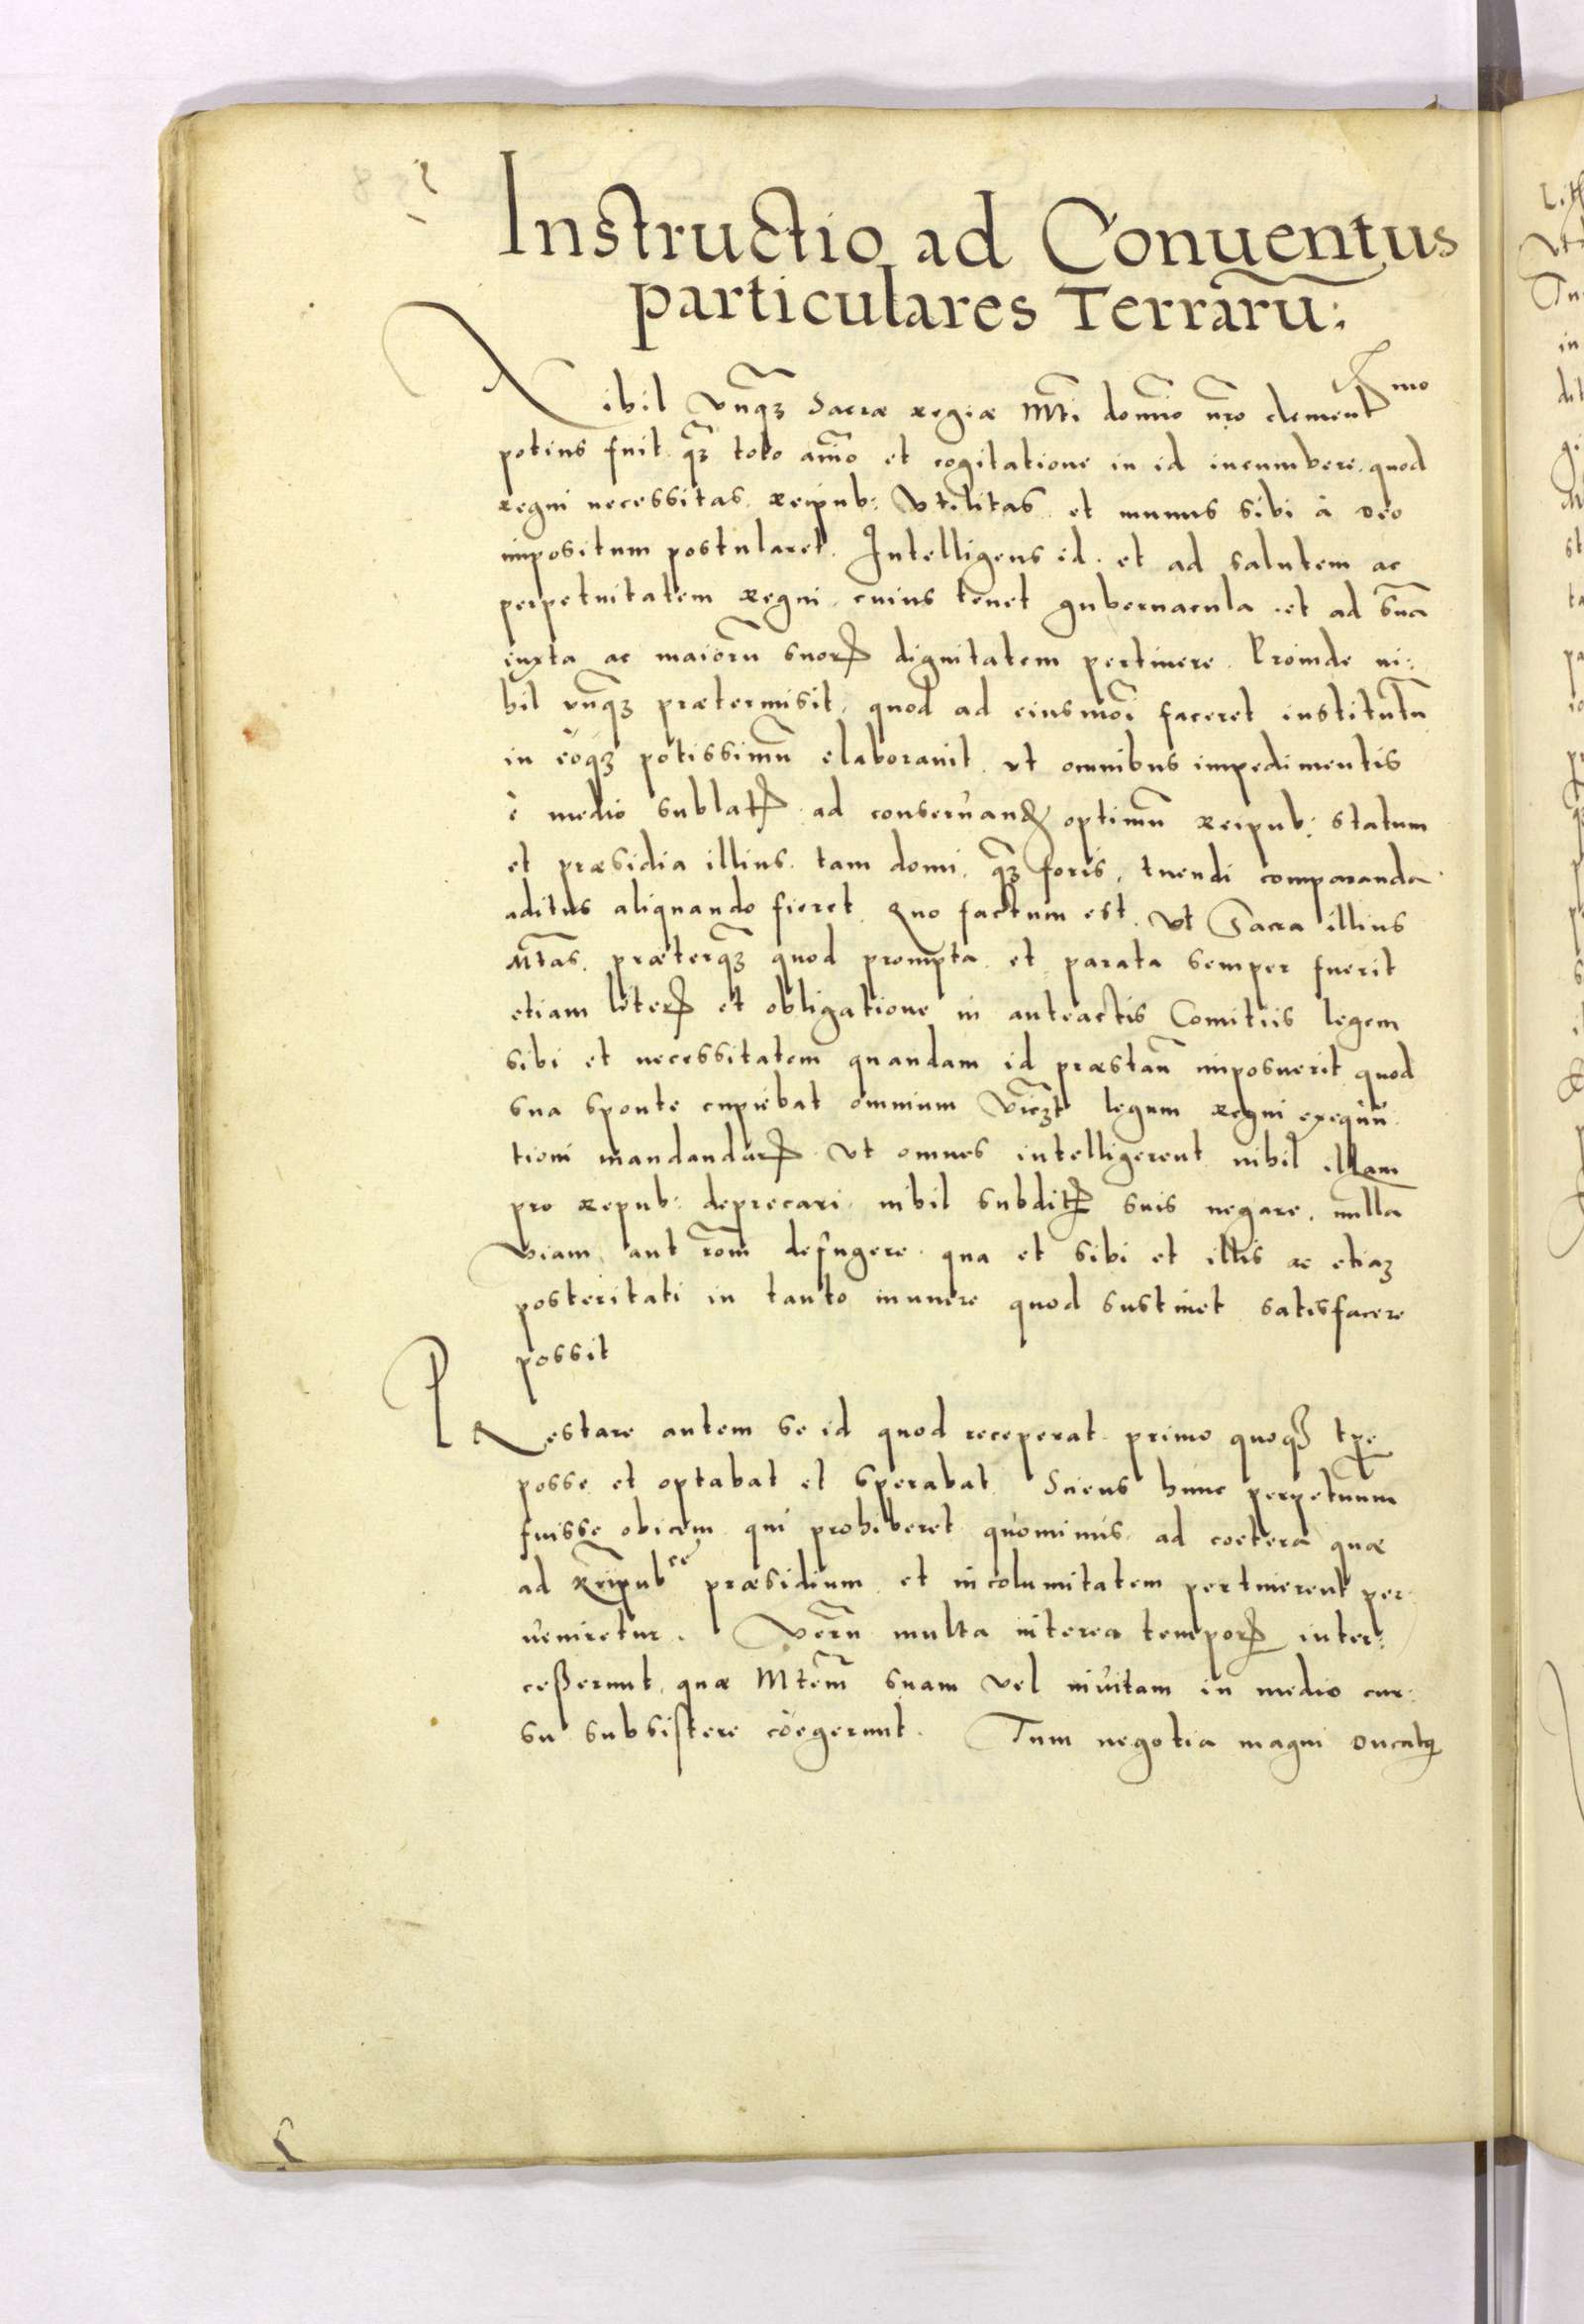 Instructio ad Conuentus
particulares Terrarũ:
Nihil vnq̃ȝ Sacræ regiæ Mti domĩo nr̃o clementꝭmo
potius fuit q̃ȝ toto aĩo et cogitatione in id incumbere, quod
regni necessitas, reipub: vtilitas et munus sibi à Deo
impositum postularet. Intelligens id, et ad salutem ac
perpetuitatem regni, cuius tenet gubernacula, et ad suã
iuxta ac maiorũ suorꝭ dignitatem pertinere. Proinde ni:
hil vnq̃ȝ prætermisit, quod ad eiusmõi faceret institutũ
in eoqȝ potissimũ elaborauit, vt omnibus impedimentis
è medio sublatꝭ ad conseruandꝭ optimũ reipub: statum
et præsidia illius, tam domi, q̃ȝ foris, tuendi comparanda
aditus aliquando fieret. Quo factum est, vt Sacra illius
Mtas, præterq̃ȝ quod prompta et parata semper fuerit
etiam literꝭ et obligatione in anteactis Comitiis legem
sibi et necessitatem quandam id præstañ imposuerit quod
sua sponte cupiebat omnium legum regni exequũ
tioni mandandarꝭ vt omnes intelligerent nihil illam
pro repub: deprecari, nihil subditꝭ suis negare, nullã
viam aut rõm defugere, qua et sibi et illis ac etiaȝ
posteritati in tanto munere quod sustinet satisfacere
possit
PRestare autem se id quod receperat primo quoqꝫ tp̃e
posse et optabat et sperabat. Sciens hunc perpetuum
fuisse obicem qui prohiberet quominus ad coetera quæ
ad Reipubce præsidium et incolumitatem pertinerent per
ueniretur. Verũ multa interea temporꝭ inter:
ceßerunt, quæ Mtem̃ suam vel inuitam in medio cur:
su subsistere coëgerunt. Tum negotia magni Ducatꝰ